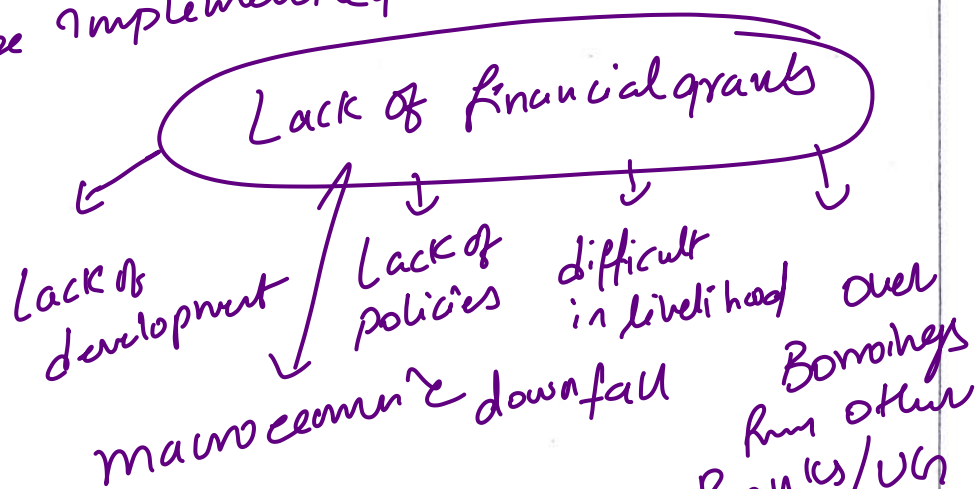 Lack of financial grants
Lack of
development
Lack of
policies
difficult
in livelihood
over
Borroings
from other
macroeconomic downfall